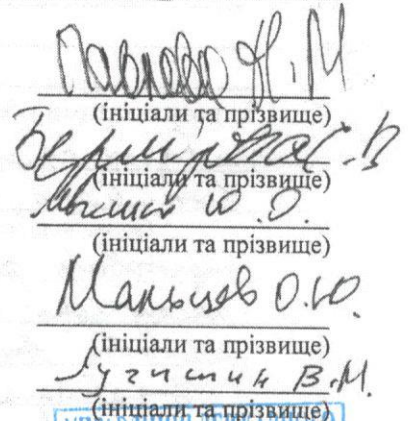 Павлова Н.М
(ініціали та прізвище)
(ініціали та прізвище)
Ю.О.
(ініціали та прізвище)
Мальцев О.Ю.
(ініціали та прізвище)
В.М.
(ініціали та прізвище)